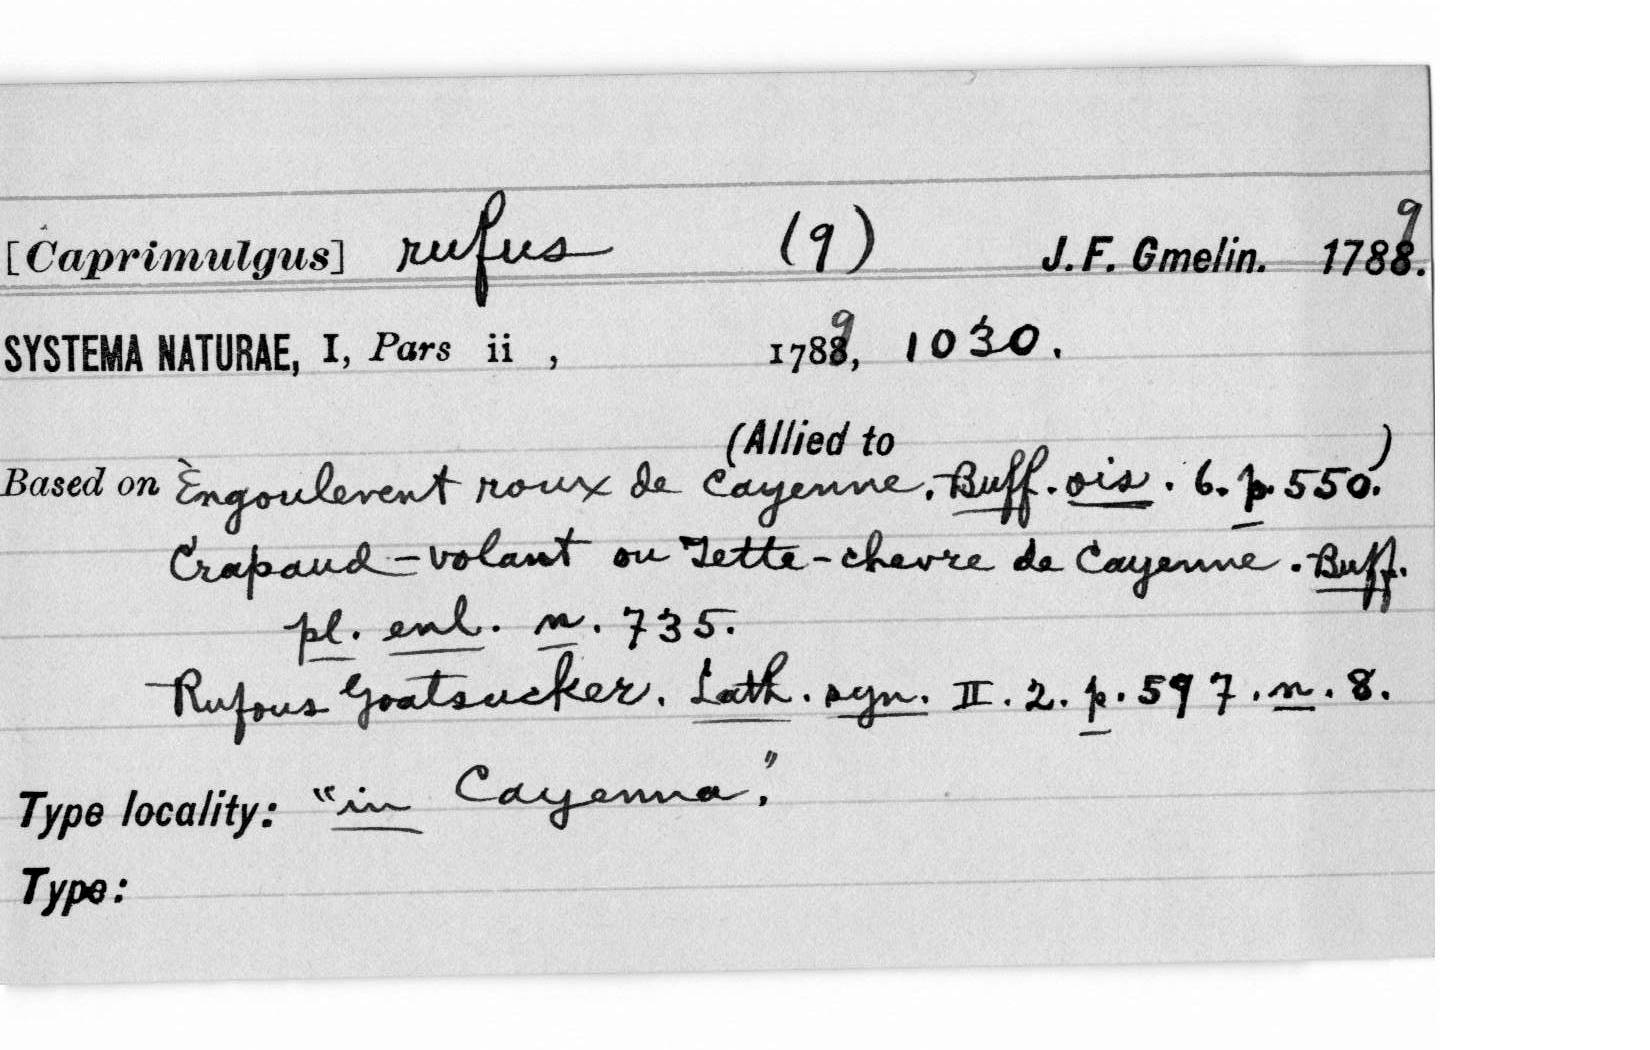 [Caprimulgus] rufus (9) J. F. Gmelin. 1789.
SYSTEMA NATURAE, I, Pars ii , 1789, 1030.
(Allied to )
Based on Èngoulevent roux de Cayenne. Buff. ois. 6. p. 550.
Crapaud-volant ou Tette-chevre de Cayenne. Buff.
pl. enl. n. 735.
Rufous Goatsucker. Lath. syn. II. 2. p. 597. n. 8.
Type locality: "in Cayenna."
Type: